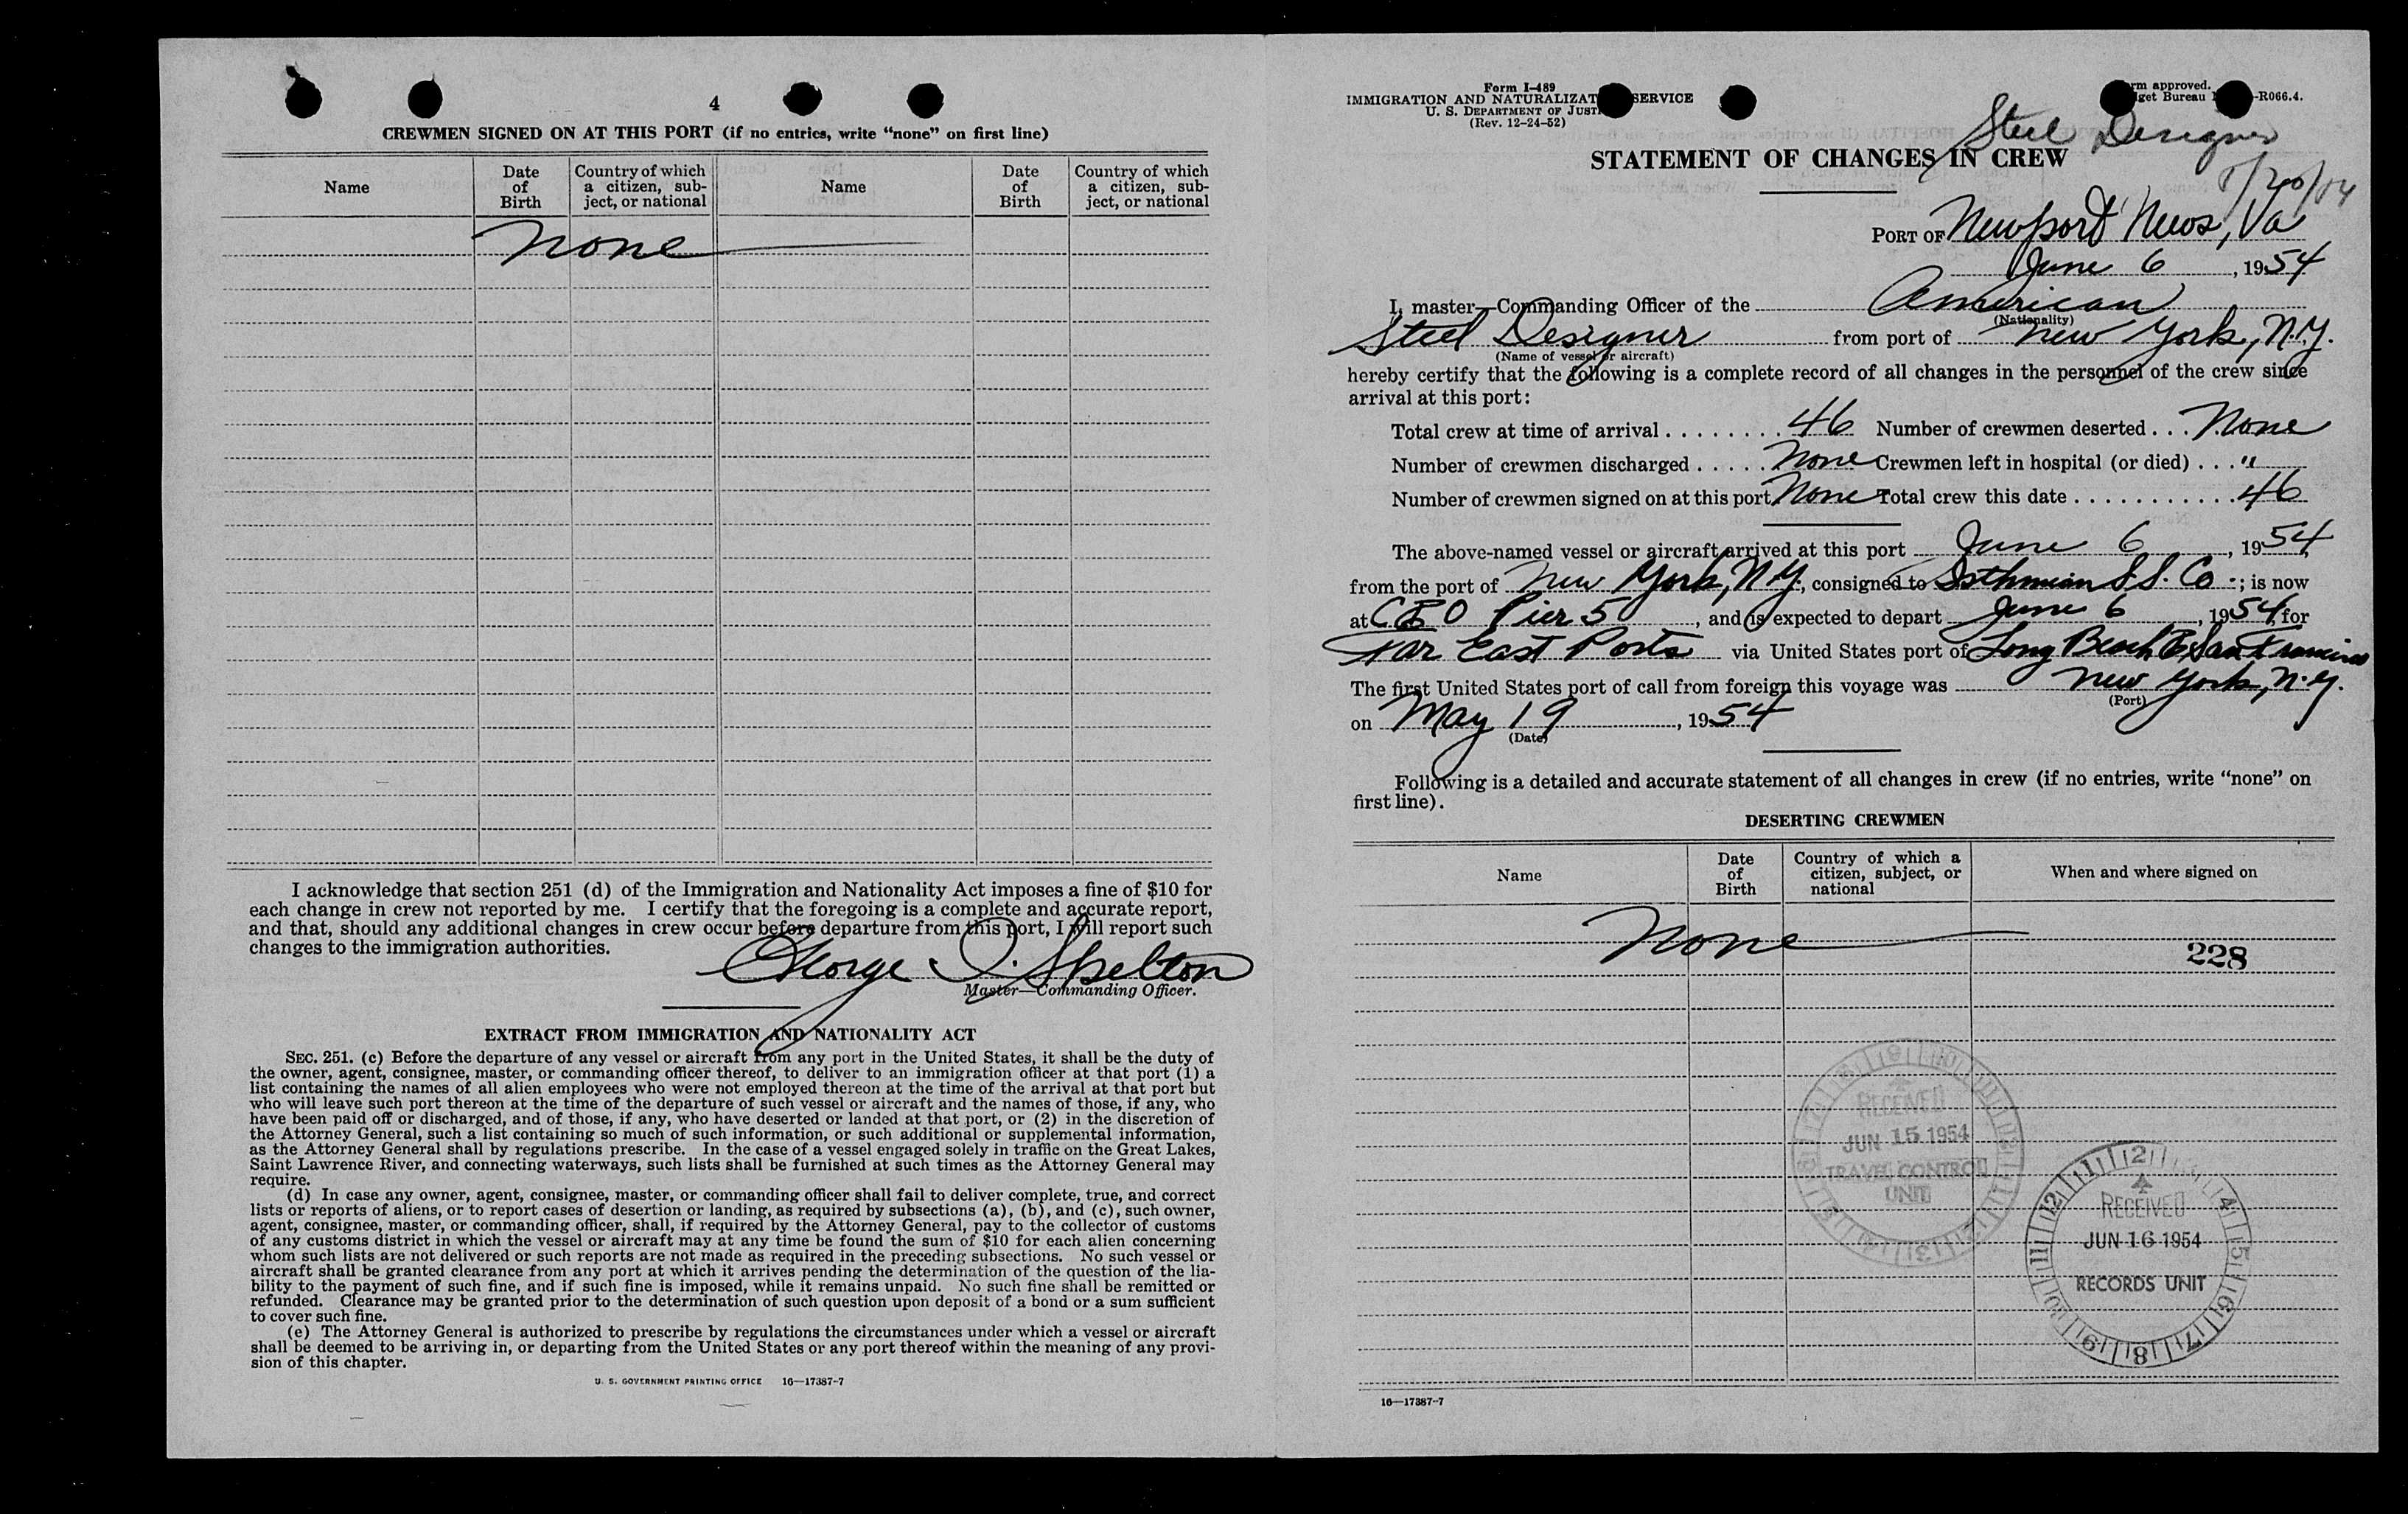 4
CREWMEN SIGNED ON AT THIS PORT (if no entries, write “none” on first line)
Name
Date of Birth
Country of which a citizen, sub-ject, or national
Name
Date of Birth
Country of which a citizen, sub-ject, or national
None
I acknowledge that section 251 (d) of the Immigration and Nationality Act imposes a fine of $10 for
each change in crew not reported by me. I certify that the foregoing is a complete and accurate report,
and that, should any additional changes in crew occur before departure from this port, I will report such
changes to the immigration authorities.
George I. Skelton
Master—Commanding Officer.
EXTRACT FROM IMMIGRATION AND NATIONALITY ACT
SEC. 251. (c) Before the departure of any vessel or aircraft from any port in the United States, it shall be the duty of
the owner, agent, consignee, master, or commanding officer thereof, to deliver to an immigration officer at that port (1) a
list containing the names of all alien employees who were not employed thereon at the time of the arrival at that port but
who will leave such port thereon at the time of the departure of such vessel or aircraft and the names of those, if any, who
have been paid off or discharged, and of those, if any, who have deserted or landed at that port, or (2) in the discretion of
the Attorney General, such a list containing so much of such information, or such additional or supplemental information,
as the Attorney General shall by regulations prescribe. In the case of a vessel engaged solely in traffic on the Great Lakes,
Saint Lawrence River, and connecting waterways, such lists shall be furnished at such times as the Attorney General may
require.
(d) In case any owner, agent, consignee, master, or commanding officer shall fail to deliver complete, true, and correct
lists or reports of aliens, or to report cases of desertion or landing, as required by subsections (a), (b), and (c), such owner,
agent, consignee, master, or commanding officer, shall, if required by the Attorney General, pay to the collector of customs
of any customs district in which the vessel or aircraft may at any time be found the sum of $10 for each alien concerning
whom such lists are not delivered or such reports are not made as required in the preceding subsections. No such vessel or
aircraft shall be granted clearance from any port at which it arrives pending the determination of the question of the lia-
bility to the payment of such fine, and if such fine is imposed, while it remains unpaid. No such fine shall be remitted or
refunded. Clearance may be granted prior to the determination of such question upon deposit of a bond or a sum sufficient
to cover such fine.
(e) The Attorney General is authorized to prescribe by regulations the circumstances under which a vessel or aircraft
shall be deemed to be arriving in, or departing from the United States or any port thereof within the meaning of any provi-
sion of this chapter.
U. S. GOVERNMENT PRINTING OFFICE 16—17387-7
Form I-489
IMMIGRATION AND NATURALIZAT SERVICE
U. S. DEPARTMENT OF JUST
(Rev. 12-24-52)
rm approved.
get Bureau -R066.4.
Steel Designer
STATEMENT OF CHANGES IN CREW
PORT OF Newport News, Va
June 6, 1954
I, master—Commanding Officer of the American
(Nationality)
Steel Designer from port of New York, N.Y.
(Name of vessel or aircraft)
hereby certify that the following is a complete record of all changes in the personnel of the crew since
arrival at this port:
Total crew at time of arrival ........ 46 Number of crewmen deserted ... None
Number of crewmen discharged ..... None Crewmen left in hospital (or died) ... "
Number of crewmen signed on at this port None Total crew this date ........... 46
The above-named vessel or aircraft arrived at this port June 6, 1954,
from the port of New York, N.Y., consigned to Isthmian S.S. Co.; is now
at C & O Pier 5, and is expected to depart June 6, 1954, for
Far East Ports via United States port of Long Beach & San Francisco
The first United States port of call from foreign this voyage was New York, N.Y.
(Port)
on May 19, 1954
(Date)
Following is a detailed and accurate statement of all changes in crew (if no entries, write “none” on
first line).
DESERTING CREWMEN
Name
Date of Birth
Country of which a citizen, subject, or national
When and where signed on
None
228
RECEIVED
JUN 15 1954
TRAVEL CONTROL
UNIT
RECEIVED
JUN 16 1954
RECORDS UNIT
16—17387-7